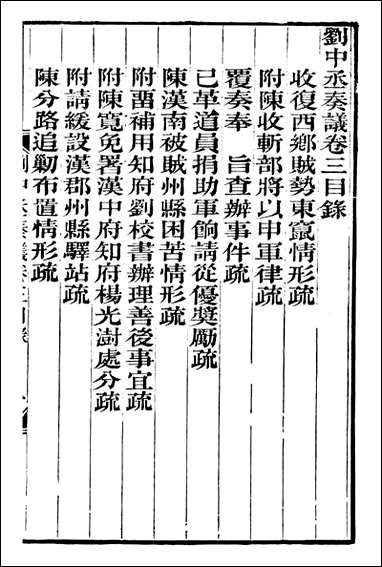 劉中丞奏議卷三目錄
收復西鄉賊勢東竄情形疏
附陳收斬部將以申軍律疏
覆奏奉　旨查辦事件疏
已革道員捐助軍餉請從優奬勵疏
陳漢南被賊州縣困苦情形疏
附畱補用知府劉校書辦理善後事宜疏
附陳寬免署漢中府知府楊光澍處分疏
附請緩設漢郡州縣驛站疏
陳分路追勦布置情形疏